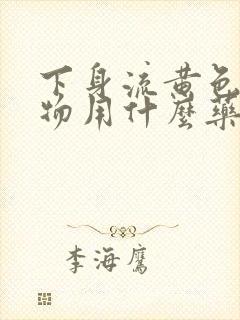 下身流黄色
物用什麼藥
李海鷹